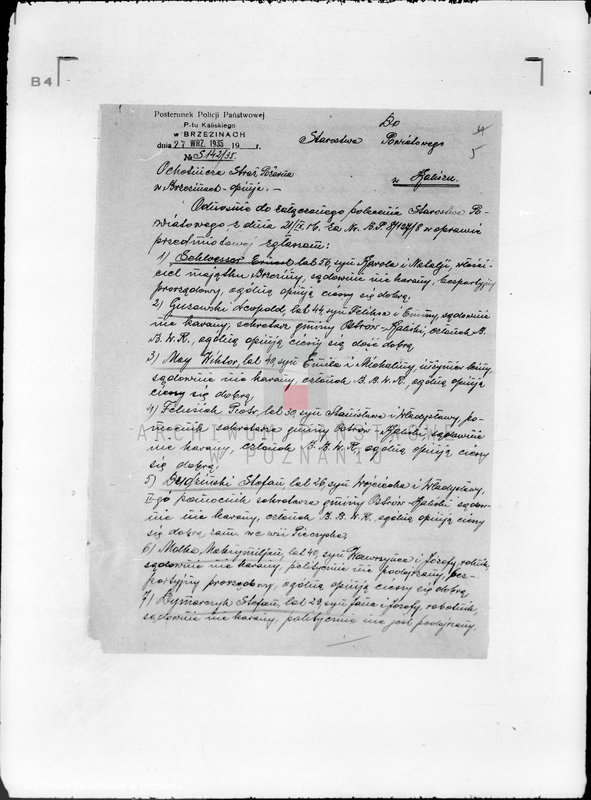 B4
Posterunek Policji Państwowej
P-tu Kaliskiego
w BRZEZINACH
dnia 27 WRZ. 1935 19 r.
№ 5142/35.
Do
Starostwa Powiatowego
w Kaliszu.
4
5
Ochotnicza Straż Pożarna
w Brzezinach - opinje. -
Odnośnie do załączonego polecenia Starostwa Po-
wiatowego z dnia 21/IX. r.b. za Nr. B.P. 8/127/8 w sprawie
przedmiotowej zgłaszam:
1) Schlosser Ernest lat 56, syn Karola i Natalji, właści-
ciel majątku Brzeziny, sądownie nie karany, bezpartyjny
prorządowy, ogólną opinją cieszy się dobrą.
2) Gusowski Leopold, lat 44, syn Feliksa i Emmy, sądownie
nie karany, sekretarz gminy Ostrów-Kaliski, członek B.
B.W.R., ogólną opinją cieszy się dość dobrą.
3) May Wiktor, lat 40, syn Emila i Michaliny,
sądownie nie karany, członek B.B.W.R., ogólną opinją
cieszy się dobrą.
4) Feluśiak Piotr, lat 30, syn Stanisława i Władysławy, po-
mocnik sekretarza gminy Ostrów-Kaliski, sądownie
nie karany, członek B.B.W.R., ogólną opinją cieszy
się dobrą.
5) Dudziński Stefan, lat 26, syn Wojciecha i Władysławy,
II-gi pomocnik sekretarza gminy Ostrów Kaliski sądow-
nie nie karany, członek B.B.W.R., ogólną opinją cieszy
się dobrą, zam. we wsi Pieczyska.
6) Matka Maksymiljan, lat 40, syn Wawrzyńca i Józefy, rolnik,
sądownie nie karany, politycznie nie podejrzany, bez-
partyjny prorządowy, ogólną opinją cieszy się dobrą.
7) Dymarczyk Stefan, lat 29, syn Jana i Józefy, robotnik,
sądownie nie karany, politycznie nie jest podejrzany
ARCHIWUM PAŃSTWOWE
W POZNANIU
Archiwum Państwowe w Poznaniu